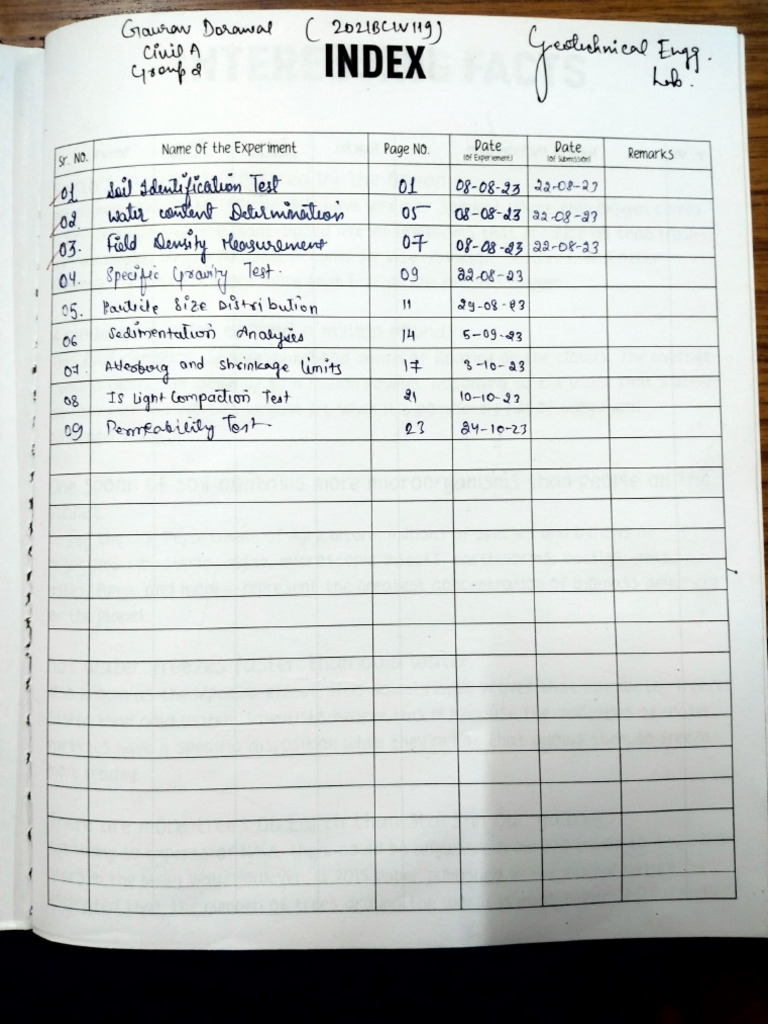 Gaurav Dorawal ( 2021BCIV119)
Civil A
Group 2
Geotechnical Engg.
Lab.
INDEX
Sr. NO. Name Of the Experiment Page NO. Date (Of Experiement) Date (Of Submission) Remarks
01 Soil Identification Test 01 08-08-23 22-08-23
02 Water content Determination 05 08-08-23 22-08-23
03. Field Density Measurement 07 08-08-23 22-08-23
04. Specific Gravity Test. 09 22-08-23
05. Particle Size Distribution 11 29-08-23
06 Sedimentation Analysis 14 5-09-23
07. Atterburg and shrinkage limits 17 3-10-23
08 IS Light Compaction Test 21 10-10-23
09 Permeability Test. 23 24-10-23